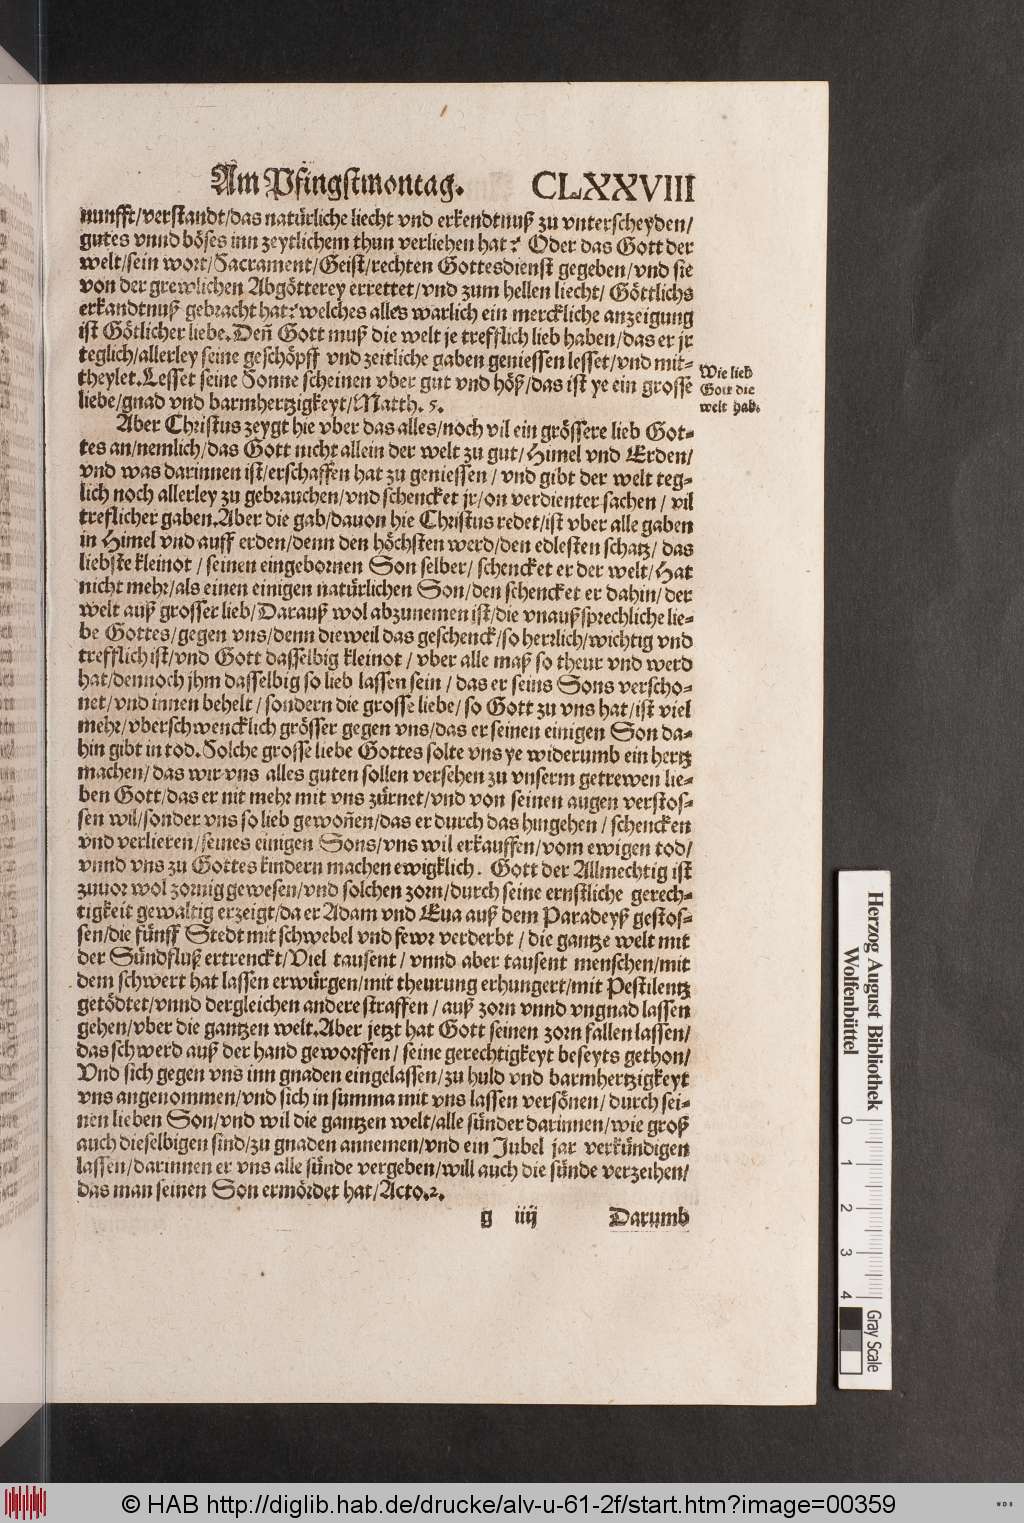 Am Pfingstmontag. CLXXVIII
nunfft/verstandt/das natürliche liecht vnd erkendtnuß zu vnterscheyden/
gutes vnnd böses inn zeytlichem thun verliehen hat? Oder das Gott der
welt/sein wort/Sacrament/Geist/rechten Gottesdienst gegeben/vnd sie
von der grewlichen Abgötterey errettet/vnd zum hellen liecht/ Göttlichs
erkandtnuß gebracht hat? welches alles warlich ein merckliche anzeigung
ist Götlicher liebe. Deñ Gott muß die welt je trefflich lieb haben/das er jr
teglich/allerley seine geschöpff vnd zeitliche gaben geniessen lesset/vnd mit-
theylet. Lesset seine Sonne scheinen vber gut vnd höß/das ist ye ein grosse
liebe/gnad vnd barmhertzigkeyt/Matth. 5.
Wie lieb
Gott die
welt hab.
Aber Christus zeygt hie vber das alles/noch vil ein grössere lieb Got-
tes an/nemlich/das Gott nicht allein der welt zu gut/Himel vnd Erden/
vnd was darinnen ist/erschaffen hat zu geniessen / vnd gibt der welt teg-
lich noch allerley zu gebrauchen/vnd schencket jr/on verdienter sachen / vil
treflicher gaben. Aber die gab/dauon hie Christus redet/ist vber alle gaben
in Himel vnd auff erden/denn den höchsten werd/den edlesten schatz/ das
liebste kleinot / seinen eingebornen Son selber/ schencket er der welt/Hat
nicht mehr/als einen einigen natürlichen Son/den schencket er dahin/ der
welt auß grosser lieb/Darauß wol abzunemen ist/die vnaußsprechliche lie-
be Gottes/gegen vns/denn dieweil das geschenck/so herrlich/wichtig vnd
trefflich ist/vnd Gott dasselbig kleinot / vber alle maß so theur vnd werd
hat/dennoch jhm dasselbig so lieb lassen sein / das er seins Sons verscho-
net/vnd innen behelt / sondern die grosse liebe/ so Gott zu vns hat/ist viel
mehr/vberschwencklich grösser gegen vns/das er seinen einigen Son da-
hin gibt in tod. Solche grosse liebe Gottes solte vns ye widerumb ein hertz
machen/das wir vns alles guten sollen versehen zu vnserm getrewen lie-
ben Gott/das er nit mehr mit vns zürnet/vnd von seinen augen verstos-
sen wil/sonder vns so lieb gewoñen/das er durch das hingehen / schencken
vnd verlieren/seines einigen Sons/vns wil erkauffen/vom ewigen tod/
vnnd vns zu Gottes kindern machen ewigklich. Gott der Allmechtig ist
zuuor wol zornig gewesen/vnd solchen zorn/durch seine ernstliche gerech-
tigkeit gewaltig erzeigt/da er Adam vnd Eua auß dem Paradeyß gestos-
sen/die fünff Stedt mit schwebel vnd fewr verderbt / die gantze welt mit
der Sündfluß ertrenckt/Viel tausent/ vnnd aber tausent menschen/mit
dem schwert hat lassen erwürgen/mit theurung erhungert/mit Pestilentz
getödtet/vnnd dergleichen andere straffen / auß zorn vnnd vngnad lassen
gehen/vber die gantzen welt. Aber jetzt hat Gott seinen zorn fallen lassen/
das schwerd auß der hand geworffen / seine gerechtigkeyt beseyts gethon/
Vnd sich gegen vns inn gnaden eingelassen/zu huld vnd barmhertzigkeyt
vns angenommen/vnd sich in summa mit vns lassen versönen/ durch sei-
nen lieben Son/vnd wil die gantzen welt/alle sünder darinnen/wie groß
auch dieselbigen sind/zu gnaden annemen/vnd ein Jubel jar verkündigen
lassen/darinnen er vns alle sünde vergeben/will auch die sünde verzeihen/
das man seinen Son ermördet hat/Acto.2.
g iiij Darumb
Herzog August Bibliothek
Wolfenbüttel
0 1 2 3 4
Gray Scale
© HAB http://diglib.hab.de/drucke/alv-u-61-2f/start.htm?image=00359
WDB